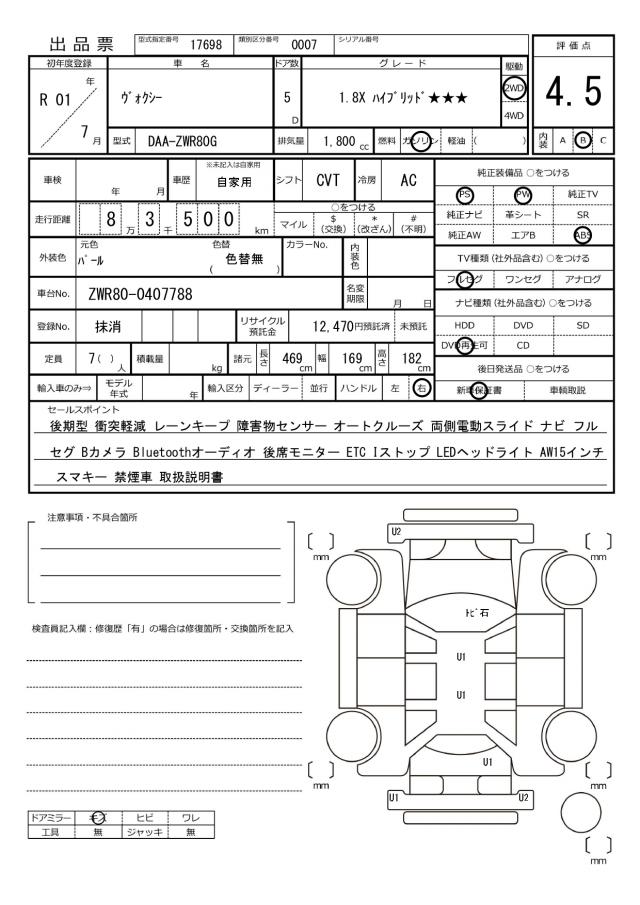 出品票 型式指定番号 17698 類別区分番号 0007 シリアル番号
評価点
初年度登録 車名 ドア数 グレード 駆動
R 01 年 ヴォクシー 5 D 1.8X ハイブリッド★★★ 2WD 4.5
7 月 4WD
型式 DAA-ZWR80G 排気量 1,800 cc 燃料 ガソリン 軽油 ( ) 内装 A B C
車検 年 月 車歴 ※未記入は自家用 自家用 シフト CVT 冷房 AC
純正装備品 ○をつける
PS PW 純正TV
純正ナビ 革シート SR
純正AW エアB ABS
走行距離 8 万 3 千 5 0 0 km
○をつける
マイル $(交換) *(改ざん) #(不明)
外装色 元色 パール 色替 ( 色替無 ) カラーNo. 内装色
TV種類(社外品含む)○をつける
フルセグ ワンセグ アナログ
車台No. ZWR80-0407788 名変期限 月 日
ナビ種類(社外品含む)○をつける
HDD DVD SD
DVD再生可 CD
登録No. 抹消 リサイクル預託金 12,470円預託済 未預託
定員 7( ) 人 積載量 kg 諸元 長さ 469 cm 幅 169 cm 高さ 182 cm
後日発送品 ○をつける
新車保証書 車輌取説
輸入車のみ⇒ モデル年式 年 輸入区分 ディーラー 並行 ハンドル 左 右
セールスポイント
後期型 衝突軽減 レーンキープ 障害物センサー オートクルーズ 両側電動スライド ナビ フル
セグ Bカメラ Bluetoothオーディオ 後席モニター ETC Iストップ LEDヘッドライト AW15インチ
スマキー 禁煙車 取扱説明書
注意事項・不具合箇所
U2
mm mm
トビ石
検査員記入欄:修復歴「有」の場合は修復箇所・交換箇所を記入
U1
U1
U1
mm mm
U1 U2
ドアミラー キズ ヒビ ワレ
工具 無 ジャッキ 無
mm